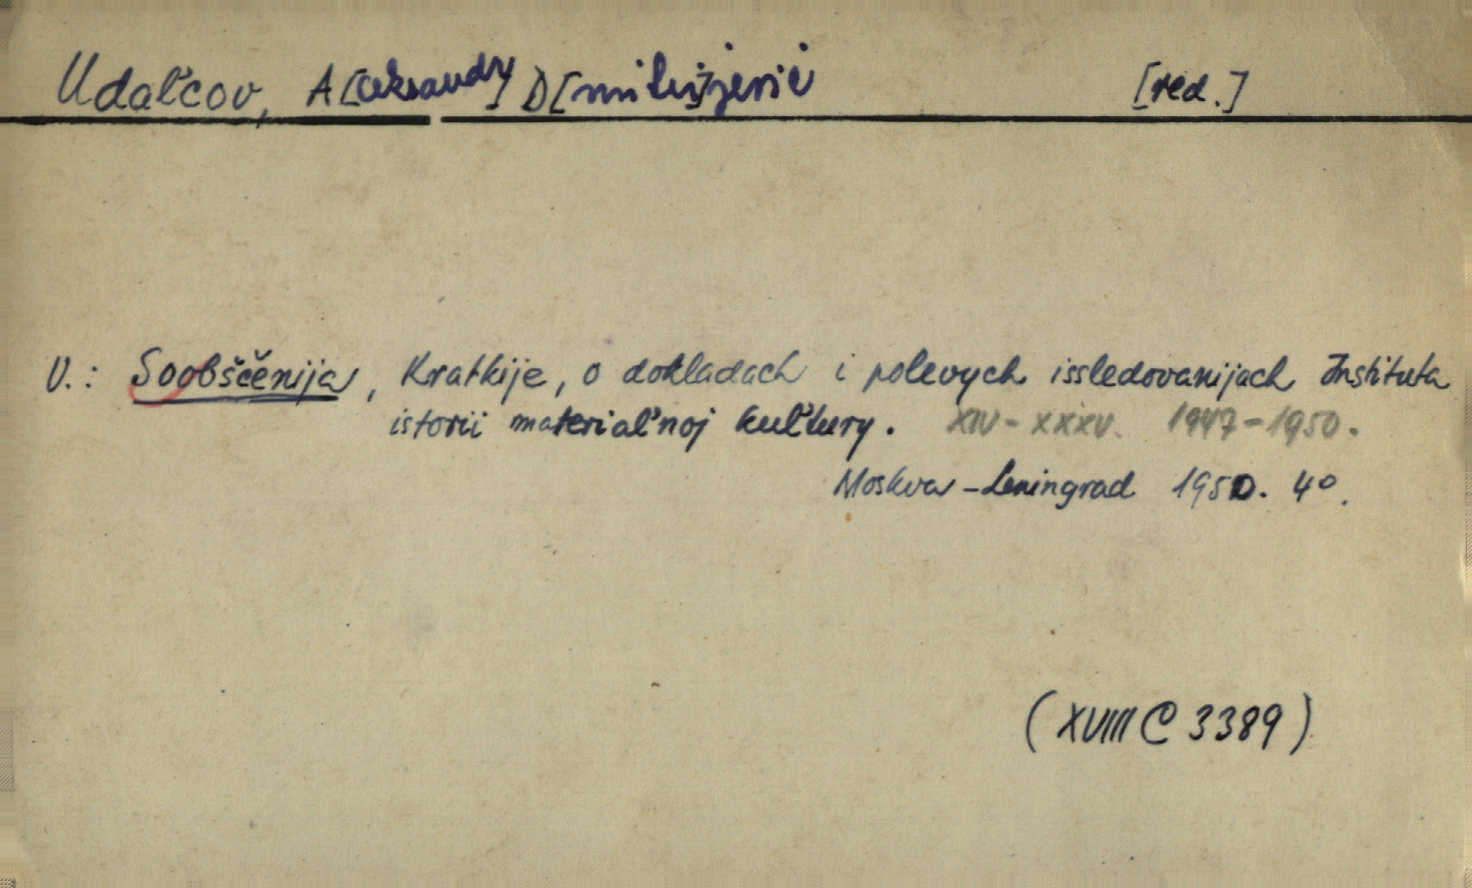 Udaľcov, A[leksandr] D[mitri]jevič [red.]
V.: Soobščěnija, Kratkije, o dokladach i polevych issledovanijach Instituta
istorii materiaľnoj kuľtury. XIV-XXXV. 1947-1950.
Moskva-Leningrad 1950. 4°.
(XVIII C 3389)